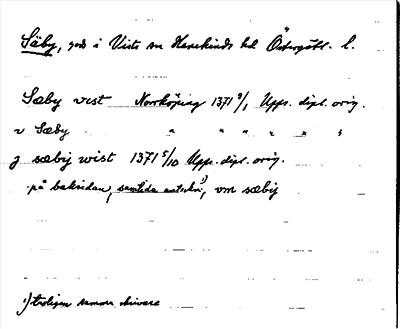 Säby, gods i Vista sn Hanekinds hd Östergötl. l.
Sæby vist Norrköping 1371 9/1 Upps. dipl. orig.
v Sæby " " " " " "
j sæbij wist 1371 5/10 Upps. dipl. orig.
på baksidan, samtida anteckn.¹), vm sæbij
¹) troligen samma skrivare